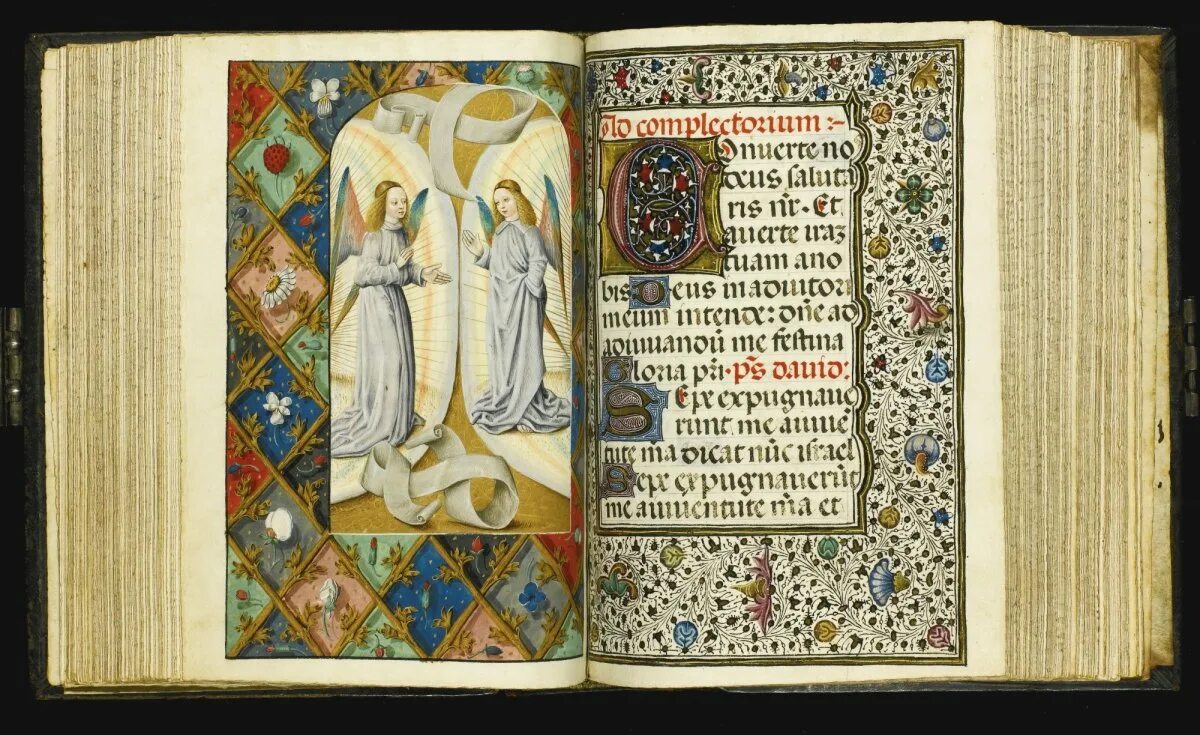 Ad complectorium :~
Conuerte no
deus saluta
ris nr̄. Et
auerte iraz
tuam ano
bis. Deus in adiutori
meum intende: dn̄e ad
adiuuandū me festina
Gloria pri. ps dauid:
Sepe expugnaue
runt me aiuue
tute mā dicat nūc israel
Sepe expugnauerūt
me aiuuentute mā et